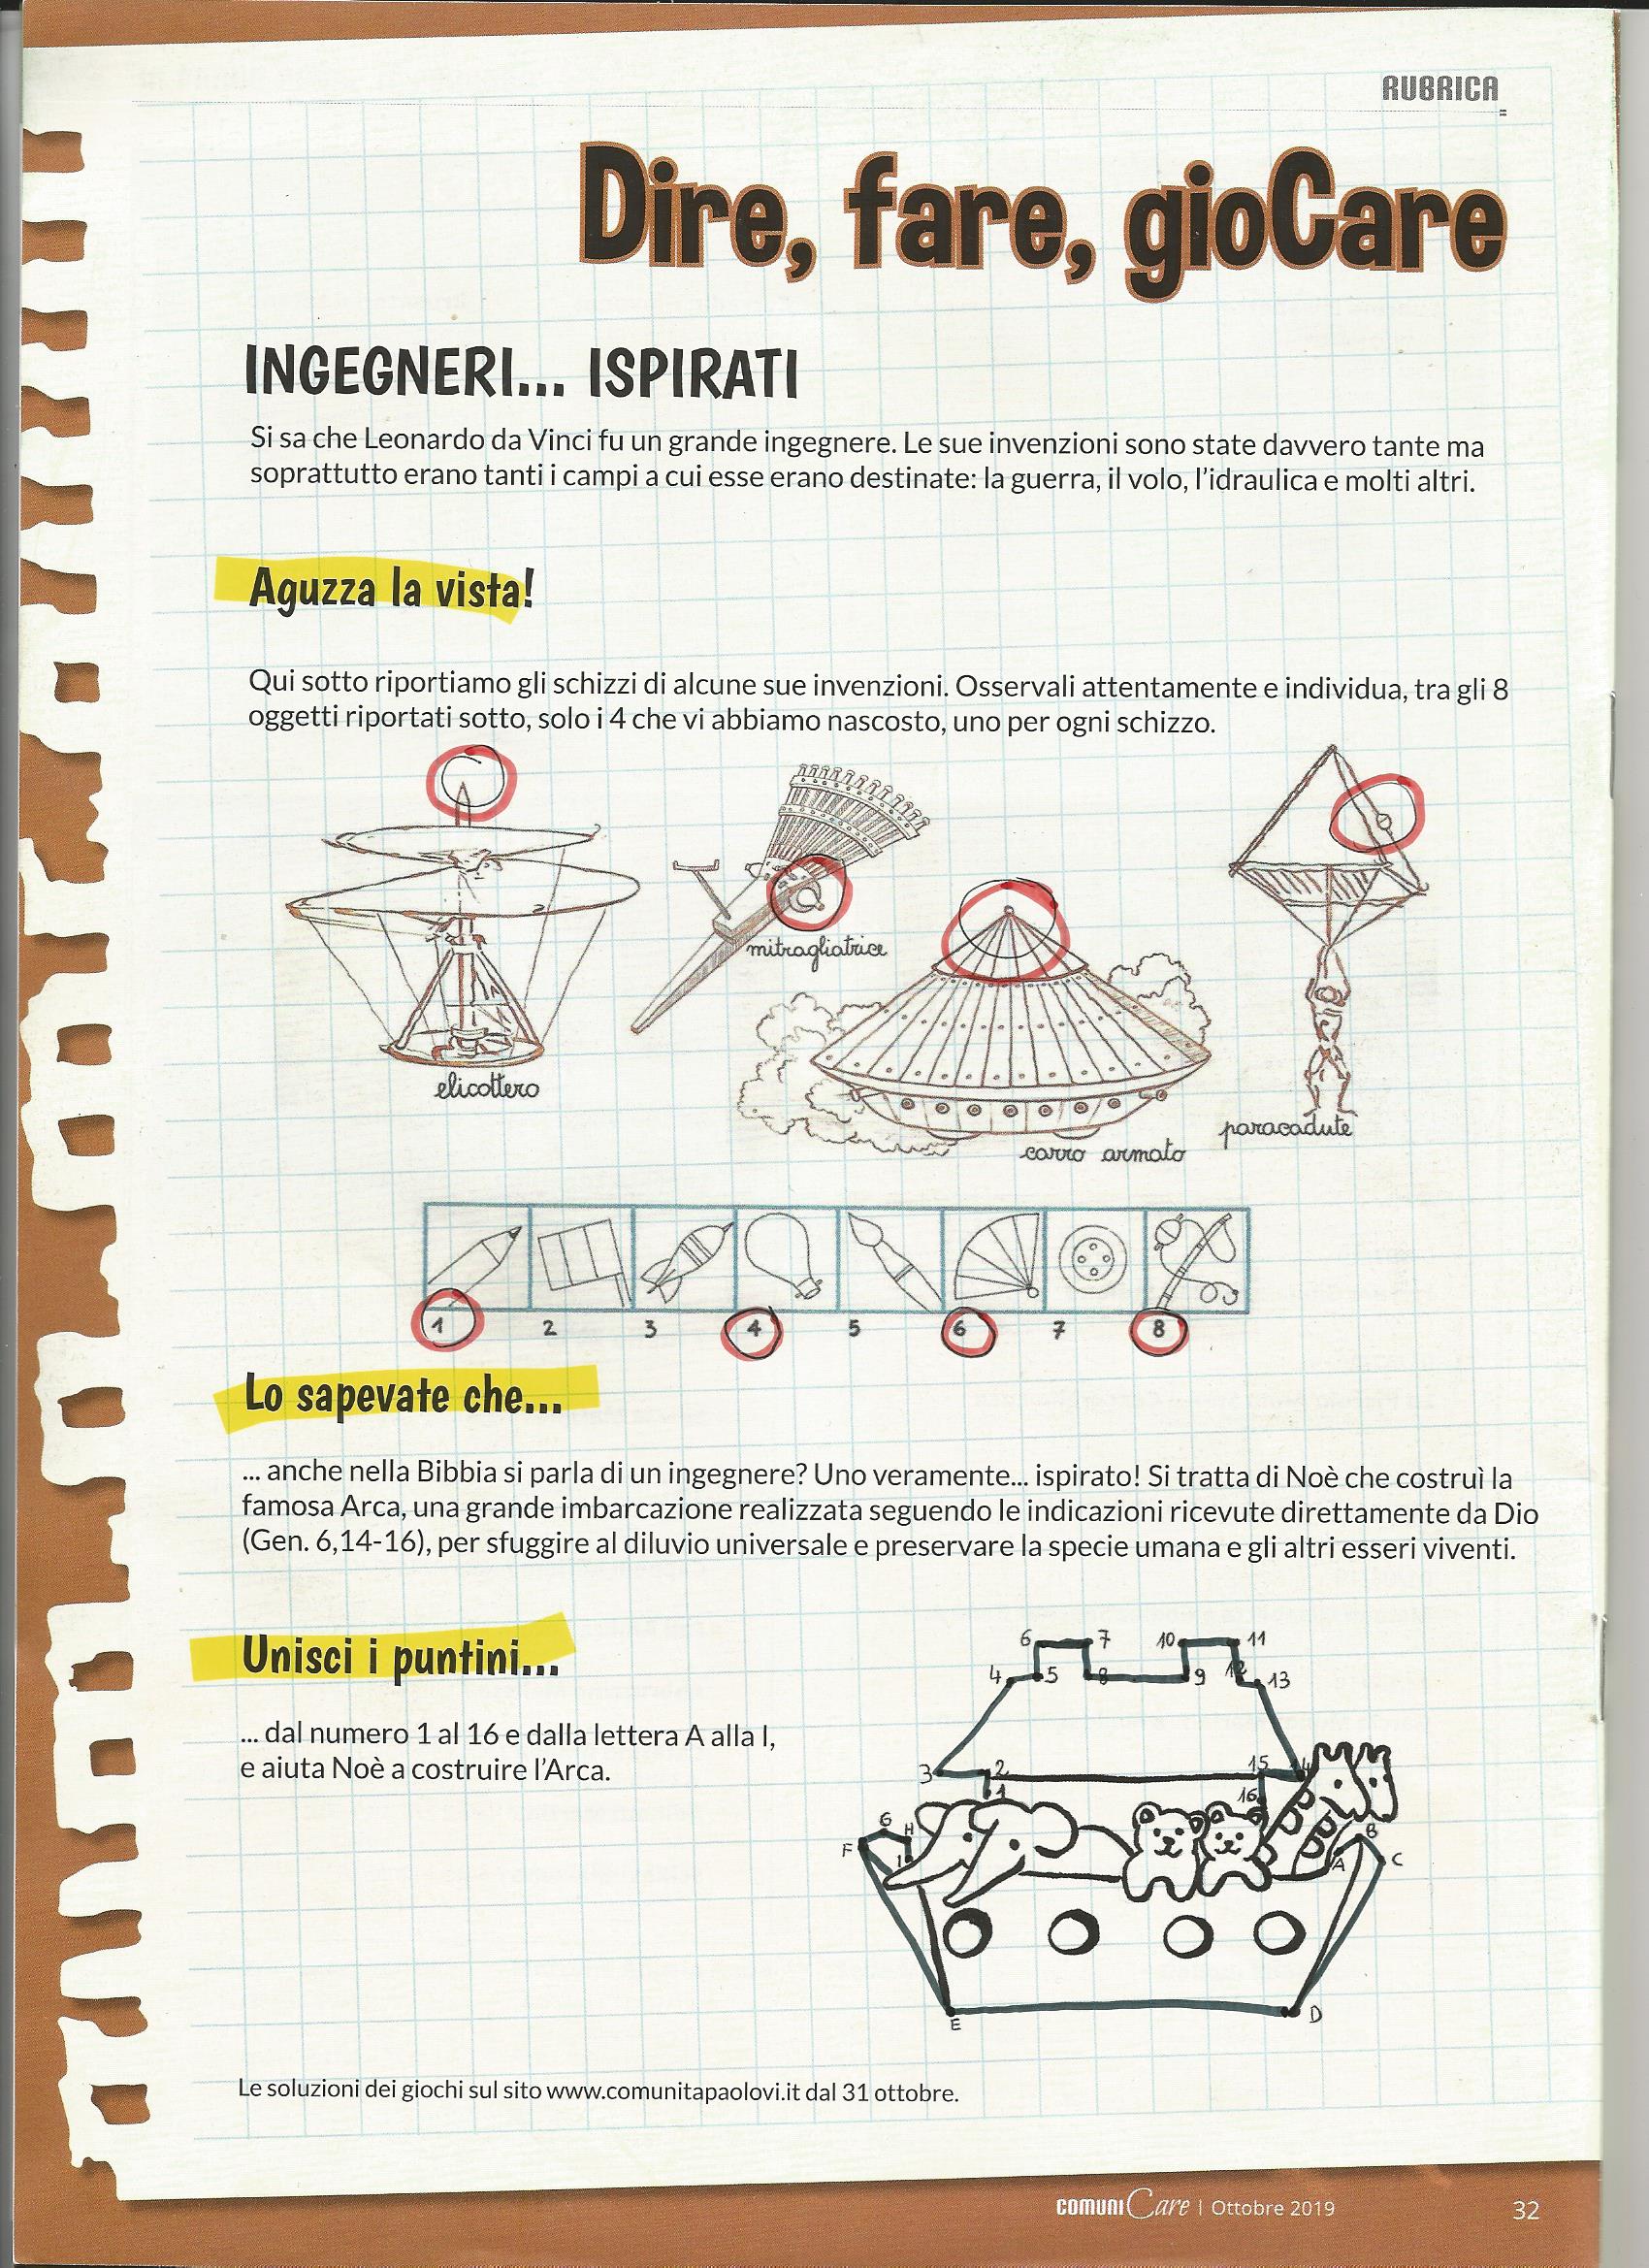 RUBRICA
Dire, fare, gioCare
INGEGNERI... ISPIRATI
Si sa che Leonardo da Vinci fu un grande ingegnere. Le sue invenzioni sono state davvero tante ma
soprattutto erano tanti i campi a cui esse erano destinate: la guerra, il volo, l'idraulica e molti altri.
Aguzza la vista!
Qui sotto riportiamo gli schizzi di alcune sue invenzioni. Osservali attentamente e individua, tra gli 8
oggetti riportati sotto, solo i 4 che vi abbiamo nascosto, uno per ogni schizzo.
mitragliatrice
elicottero
paracadute
carro armato
1 2 3 4 5 6 7 8
Lo sapevate che...
... anche nella Bibbia si parla di un ingegnere? Uno veramente... ispirato! Si tratta di Noè che costruì la
famosa Arca, una grande imbarcazione realizzata seguendo le indicazioni ricevute direttamente da Dio
(Gen. 6,14-16), per sfuggire al diluvio universale e preservare la specie umana e gli altri esseri viventi.
Unisci i puntini...
... dal numero 1 al 16 e dalla lettera A alla I,
e aiuta Noè a costruire l'Arca.
6 7 10 11
4 5 8 9 12 13
3 2 15 14
1 16
G H B
F I A C
E D
Le soluzioni dei giochi sul sito www.comunitapaolovi.it dal 31 ottobre.
COMUNICare | Ottobre 2019 32